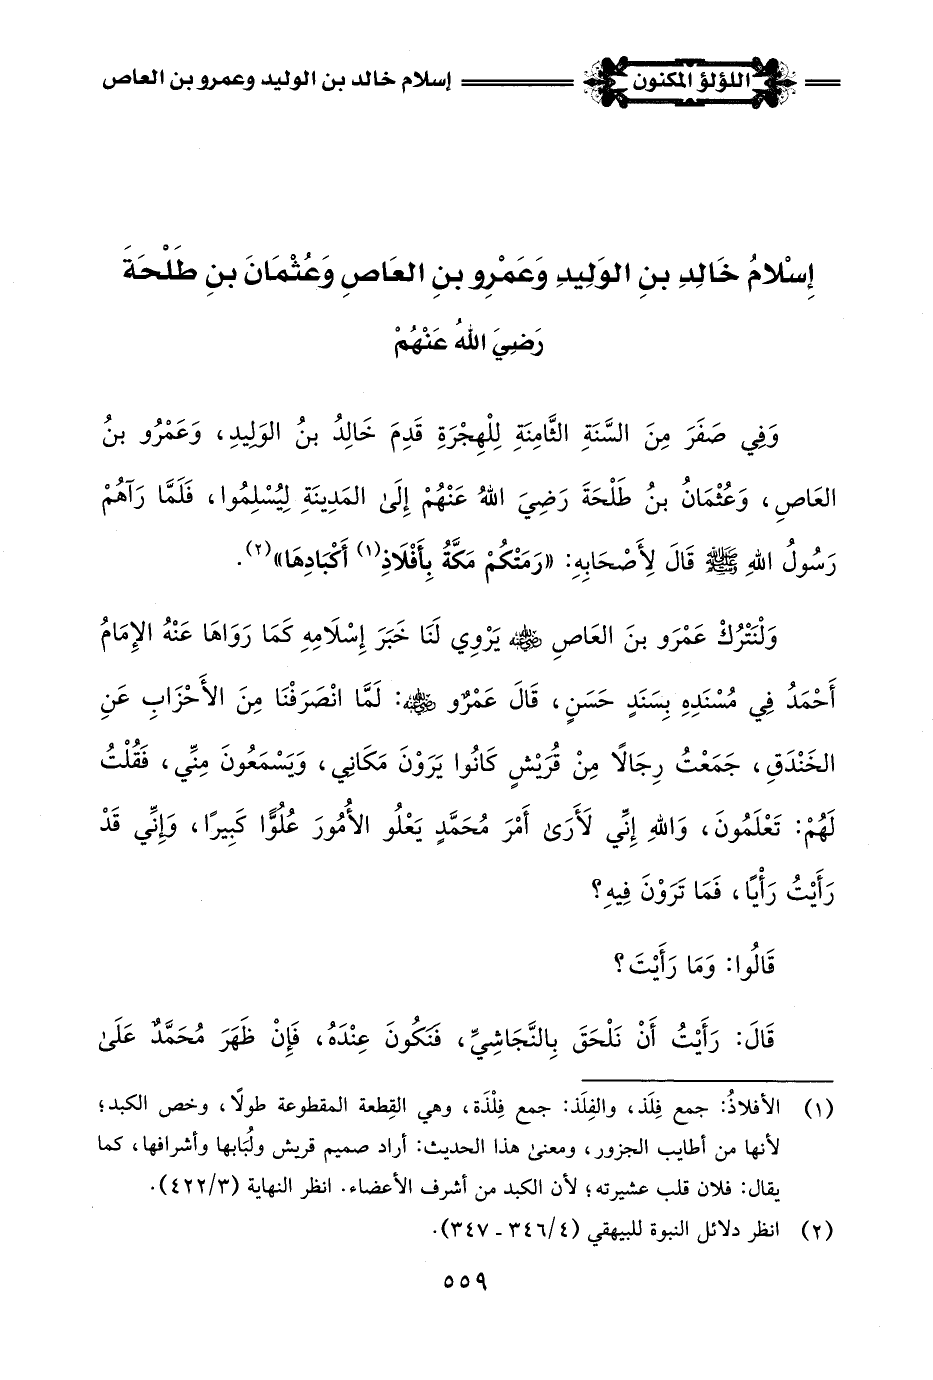 اللؤلؤ المكنون إسلام خالد بن الوليد وعمرو بن العاص
إِسْلَامُ خَالِدِ بنِ الوَلِيدِ وَعَمْرِو بنِ العَاصِ وَعُثْمَانَ بنِ طَلْحَةَ
رَضِيَ اللهُ عَنْهُمْ
وَفِي صَفَرَ مِنَ السَّنَةِ الثَّامِنَةِ لِلْهِجْرَةِ قَدِمَ خَالِدُ بنُ الوَلِيدِ، وَعَمْرُو بنُ
العَاصِ، وَعُثْمَانُ بنُ طَلْحَةَ رَضِيَ اللهُ عَنْهُمْ إِلَى المَدِينَةِ لِيُسْلِمُوا، فَلَمَّا رَآهُمْ
رَسُولُ اللهِ ﷺ قَالَ لِأَصْحَابِهِ: «رَمَتْكُمْ مَكَّةُ بِأَفْلَاذِ(١) أَكْبَادِهَا»(٢).
وَلْنَتْرُكْ عَمْرَو بنَ العَاصِ رضي الله عنه يَرْوِي لَنَا خَبَرَ إِسْلَامِهِ كَمَا رَوَاهَا عَنْهُ الإِمَامُ
أَحْمَدُ فِي مُسْنَدِهِ بِسَنَدٍ حَسَنٍ، قَالَ عَمْرٌو رضي الله عنه: لَمَّا انْصَرَفْنَا مِنَ الأَحْزَابِ عَنِ
الخَنْدَقِ، جَمَعْتُ رِجَالًا مِنْ قُرَيْشٍ كَانُوا يَرَوْنَ مَكَانِي، وَيَسْمَعُونَ مِنِّي، فَقُلْتُ
لَهُمْ: تَعْلَمُونَ، وَاللهِ إِنِّي لَأَرَى أَمْرَ مُحَمَّدٍ يَعْلُو الأُمُورَ عُلُوًّا كَبِيرًا، وَإِنِّي قَدْ
رَأَيْتُ رَأْيًا، فَمَا تَرَوْنَ فِيهِ؟
قَالُوا: وَمَا رَأَيْتَ؟
قَالَ: رَأَيْتُ أَنْ نَلْحَقَ بِالنَّجَاشِيِّ، فَنَكُونَ عِنْدَهُ، فَإِنْ ظَهَرَ مُحَمَّدٌ عَلَى
(١) الأفلاذُ: جمع فِلَذ، والفِلَذ: جمع فِلْذَة، وهي القِطعة المقطوعة طولًا، وخص الكبد؛
لأنها من أطايب الجزور، ومعنى هذا الحديث: أراد صميم قريش ولُبَابها وأشرافها، كما
يقال: فلان قلب عشيرته؛ لأن الكبد من أشرف الأعضاء. انظر النهاية (٤٢٢/٣).
(٢) انظر دلائل النبوة للبيهقي (٣٤٦/٤ - ٣٤٧).
٥٥٩